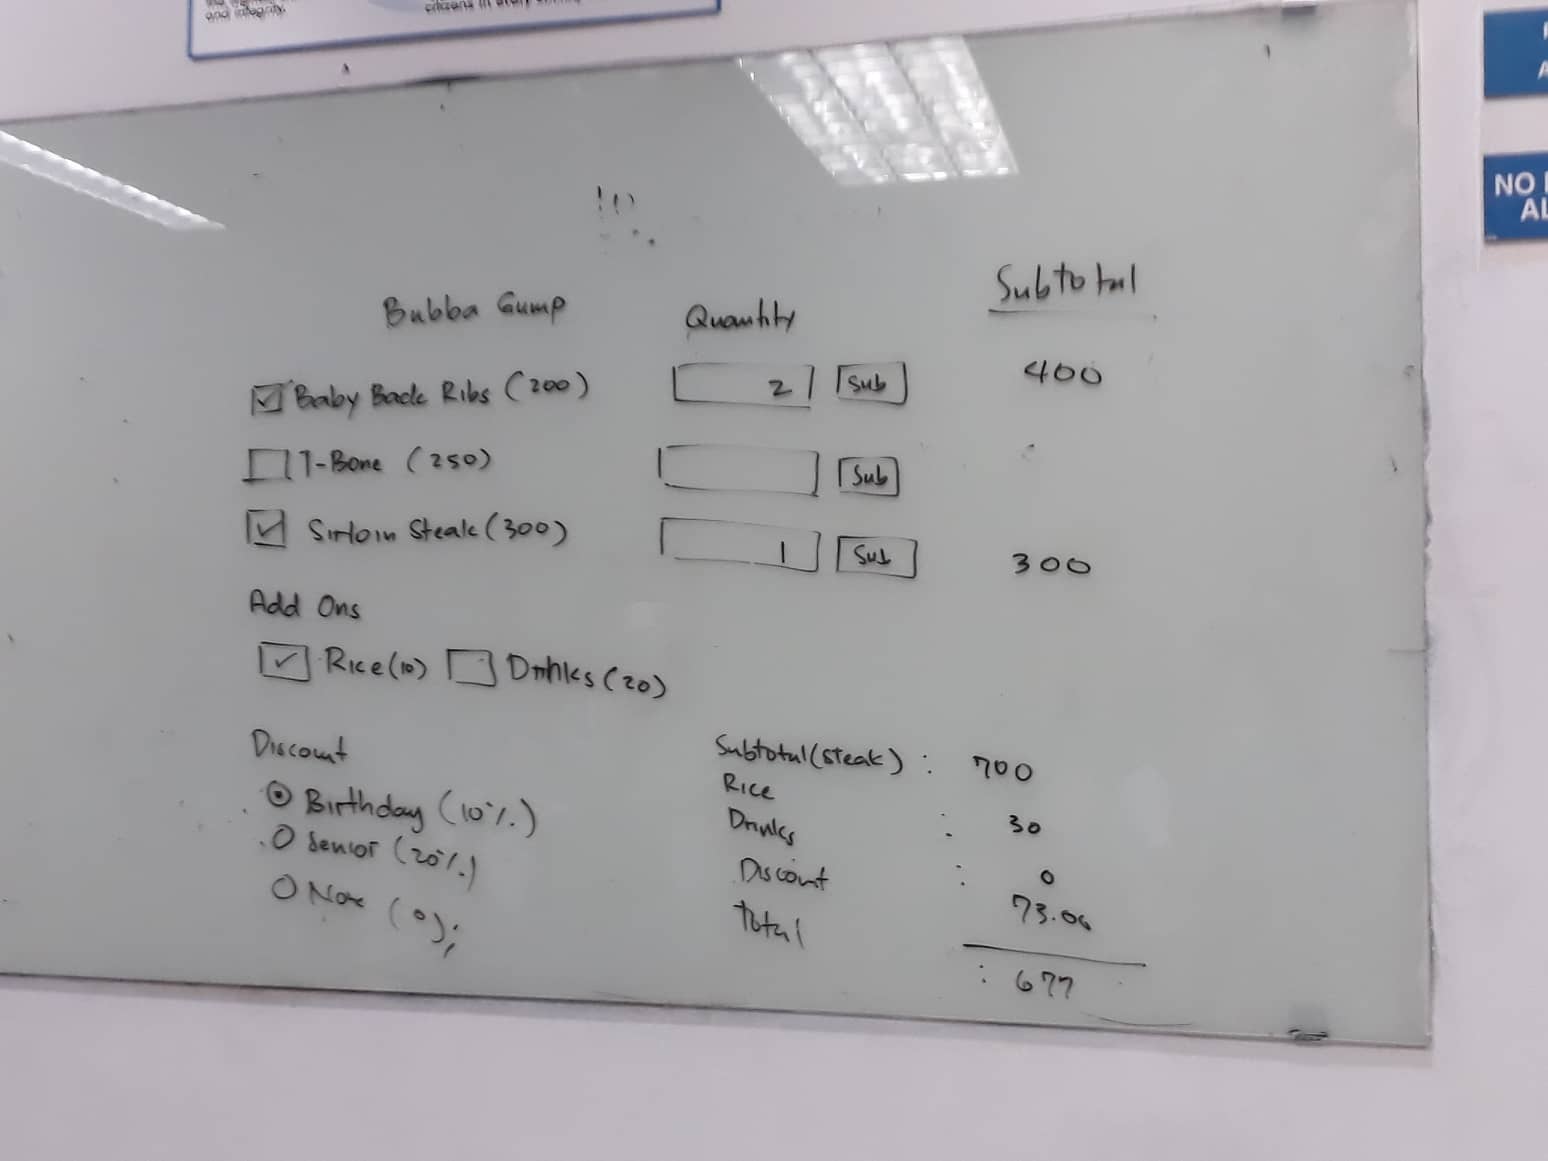 and integrity.
citizens in every
Bubba Gump Quantity Subtotal
Baby Back Ribs (200) 2 Sub 400
T-Bone (250) Sub
Sirloin Steak (300) 1 Sub 300
Add Ons
Rice (10) Drinks (20)
Discount
Birthday (10%)
Senior (20%)
None (0);
Subtotal (Steak) : 700
Rice
Drinks : 30
Discount : 0
Total 73.00
: 677
NO
AL